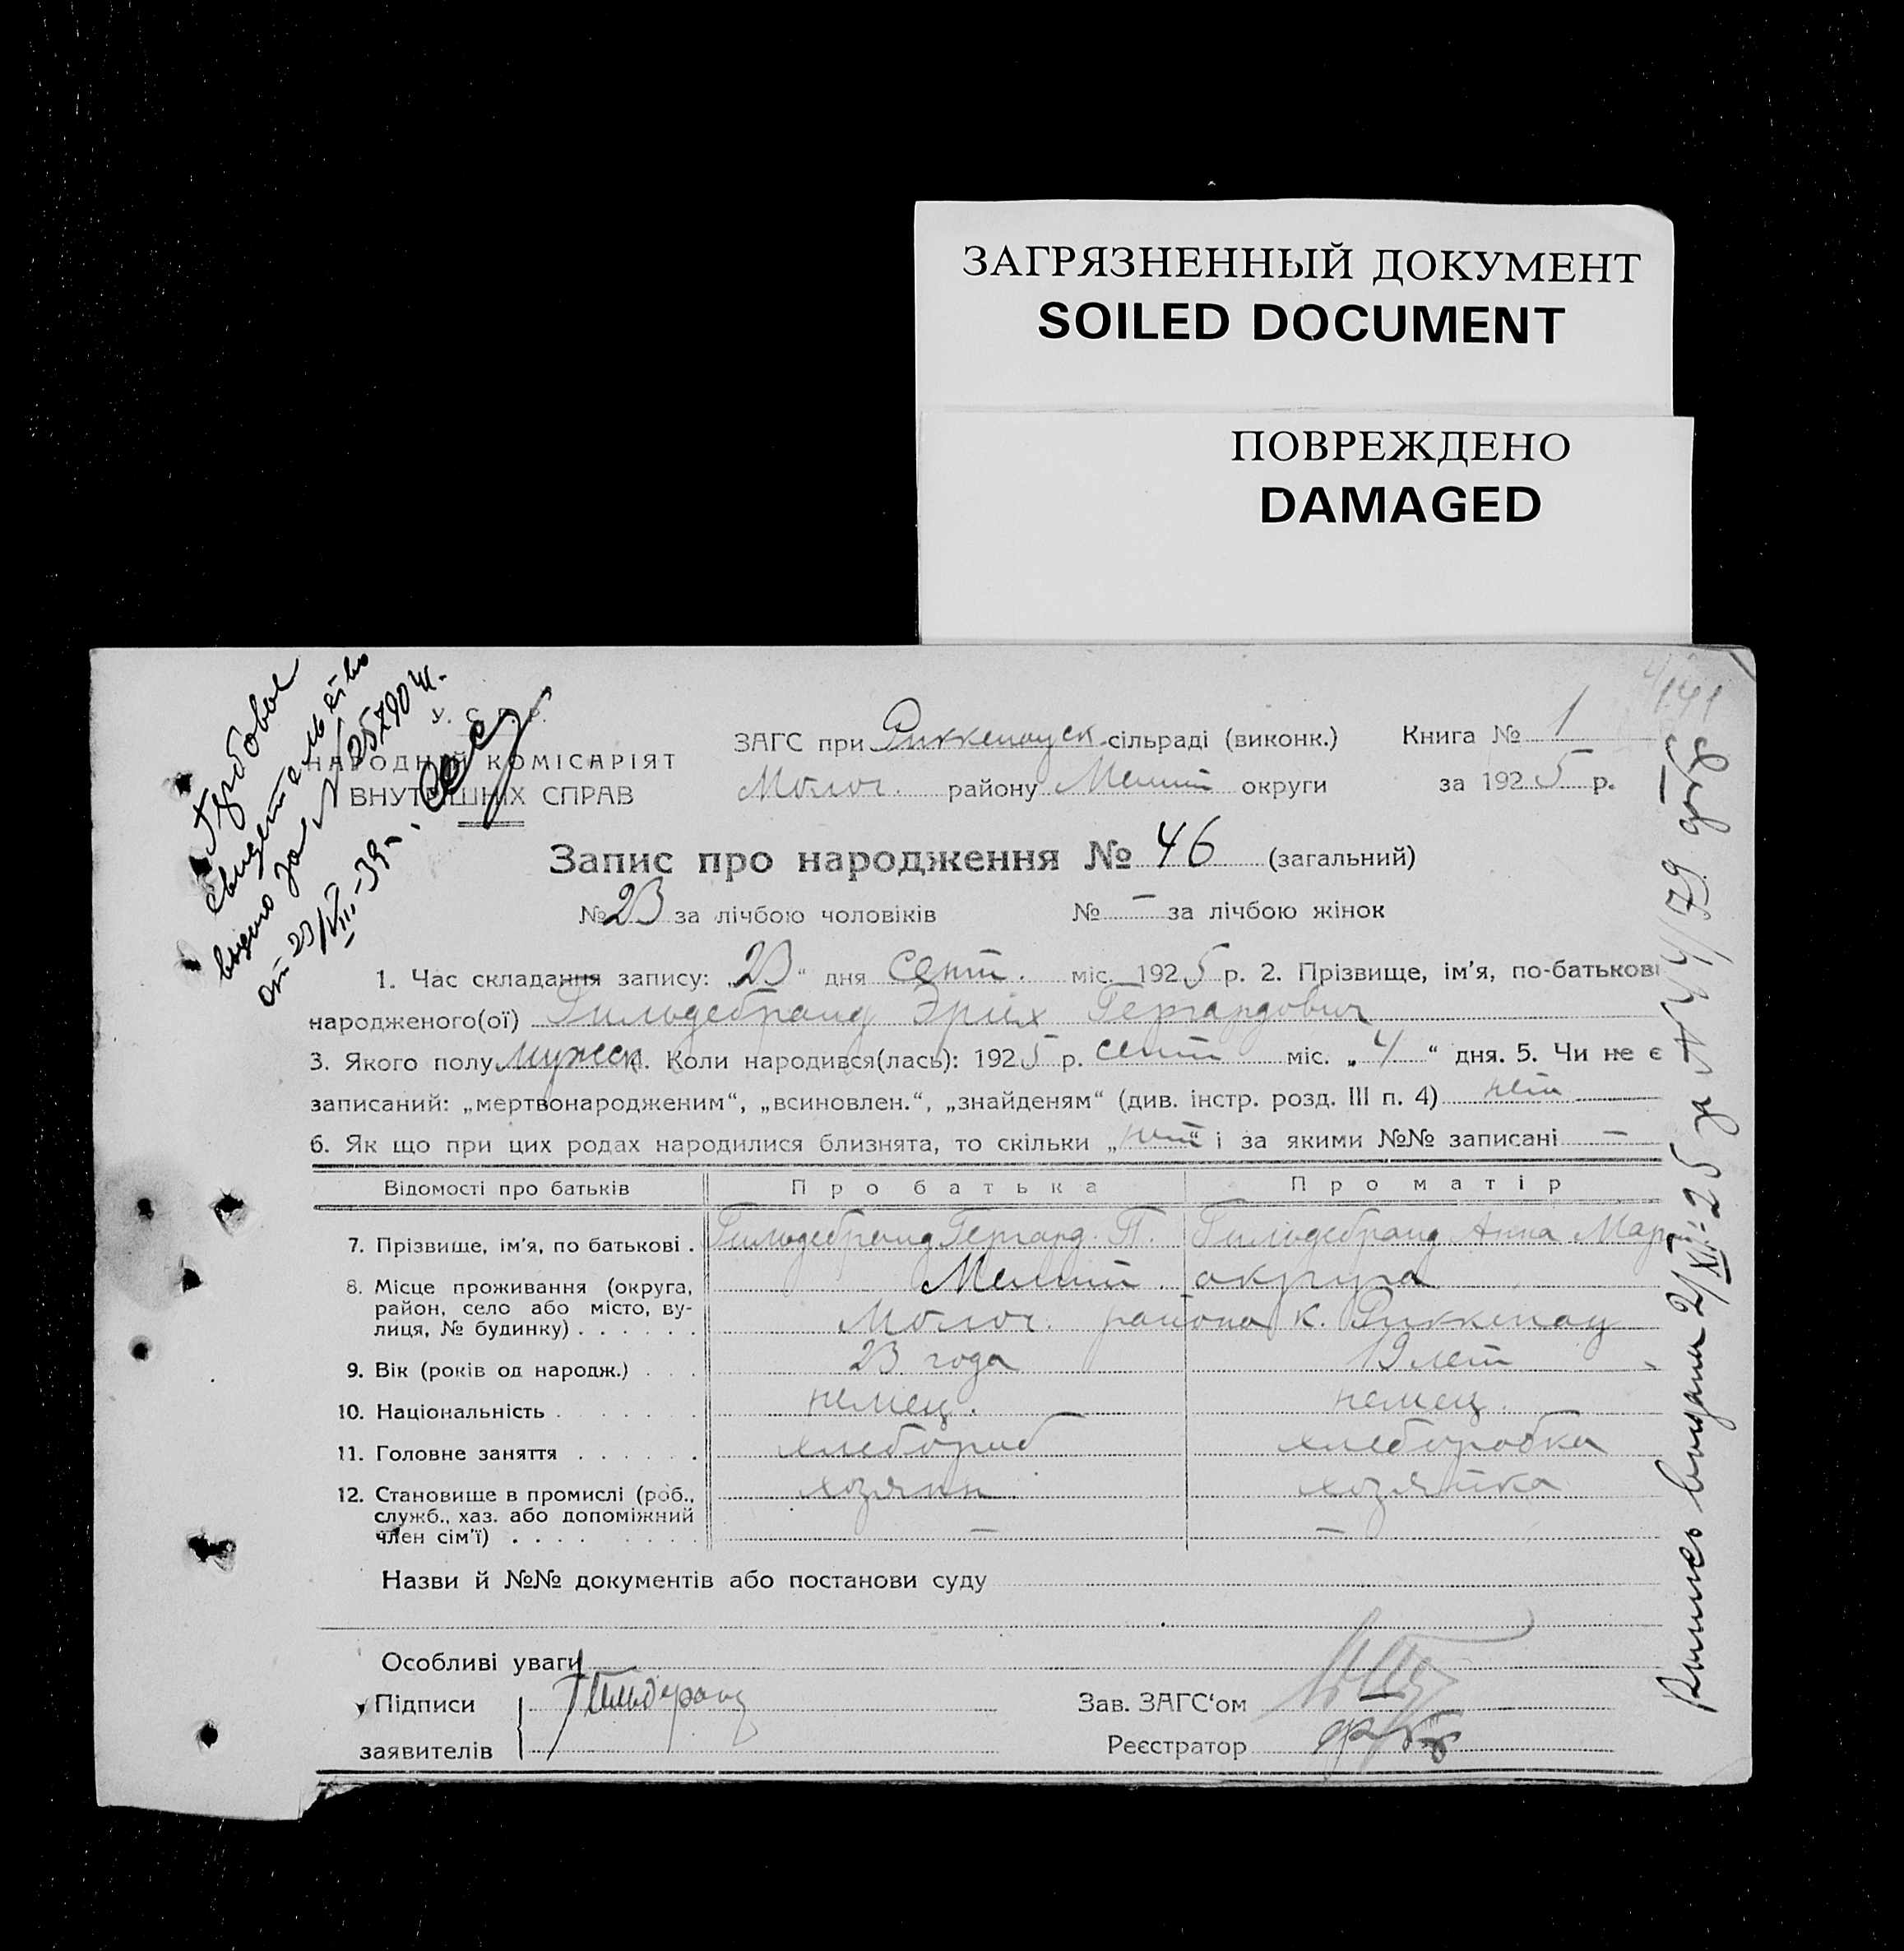 ЗАГРЯЗНЕННЫЙ ДОКУМЕНТ
SOILED DOCUMENT
ПОВРЕЖДЕНО
DAMAGED
Гербовое
свидетельство
выдано за № 25790
от 23/VIII-39 г.
У. С. Р. Р.
НАРОДНІЙ КОМІСАРІЯТ
ВНУТРІШНІХ СПРАВ
ЗАГС при Риккенауск. сільраді (виконк.) Книга № 1
Молоч. району Мелит округи за 1925 р.
Запис про народження № 46 (загальний)
№ 23 за лічбою чоловіків № — за лічбою жінок
1. Час складання запису: „23“ дня сент. міс. 1925 р. 2. Прізвище, ім’я, по-батькові
народженого(ої) Гильдебранд Эрих Гергардович
3. Якого полу мужск. 4. Коли народився(лась): 1925 р. сент міс. „4“ дня. 5. Чи не є
записаний: „мертвонародженим“, „всиновлен.“, „знайденям“ (див. інстр. розд. III п. 4) нет
6. Як що при цих родах народилися близнята, то скільки „нет“ і за якими №№ записані —
Відомості про батьків Про батька Про матір
7. Прізвище, ім’я, по батькові . Гильдебранд Гергард. П. Гильдебранд Анна Мар
8. Місце проживання (округа, Мелит. округа
район, село або місто, ву- Молоч. района к. Риккенау
лиця, № будинку) . . . . . .
9. Вік (років од народж.) . . . 23 года 19 лет
10. Національність . . . . . . немец. немец.
11. Головне заняття . . . . . . хлебороб хлеборобка
12. Становище в промислі (роб., хозяин хозяйка
служб., хаз. або допоміжний
член сім’ї) . . . . . . . . — —
Назви й №№ документів або постанови суду
Особливі уваги
Підписи Гильдебранд Зав. ЗАГС‘ом
заявителів Реєстратор
Выпись выдана 2/XII-25 за № 44/79